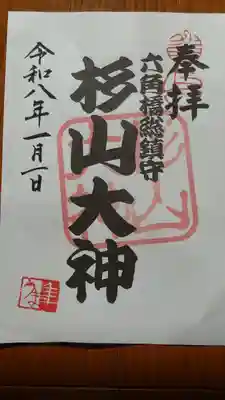 奉拝
六角橋総鎮守
杉山大神
令和八年一月一日